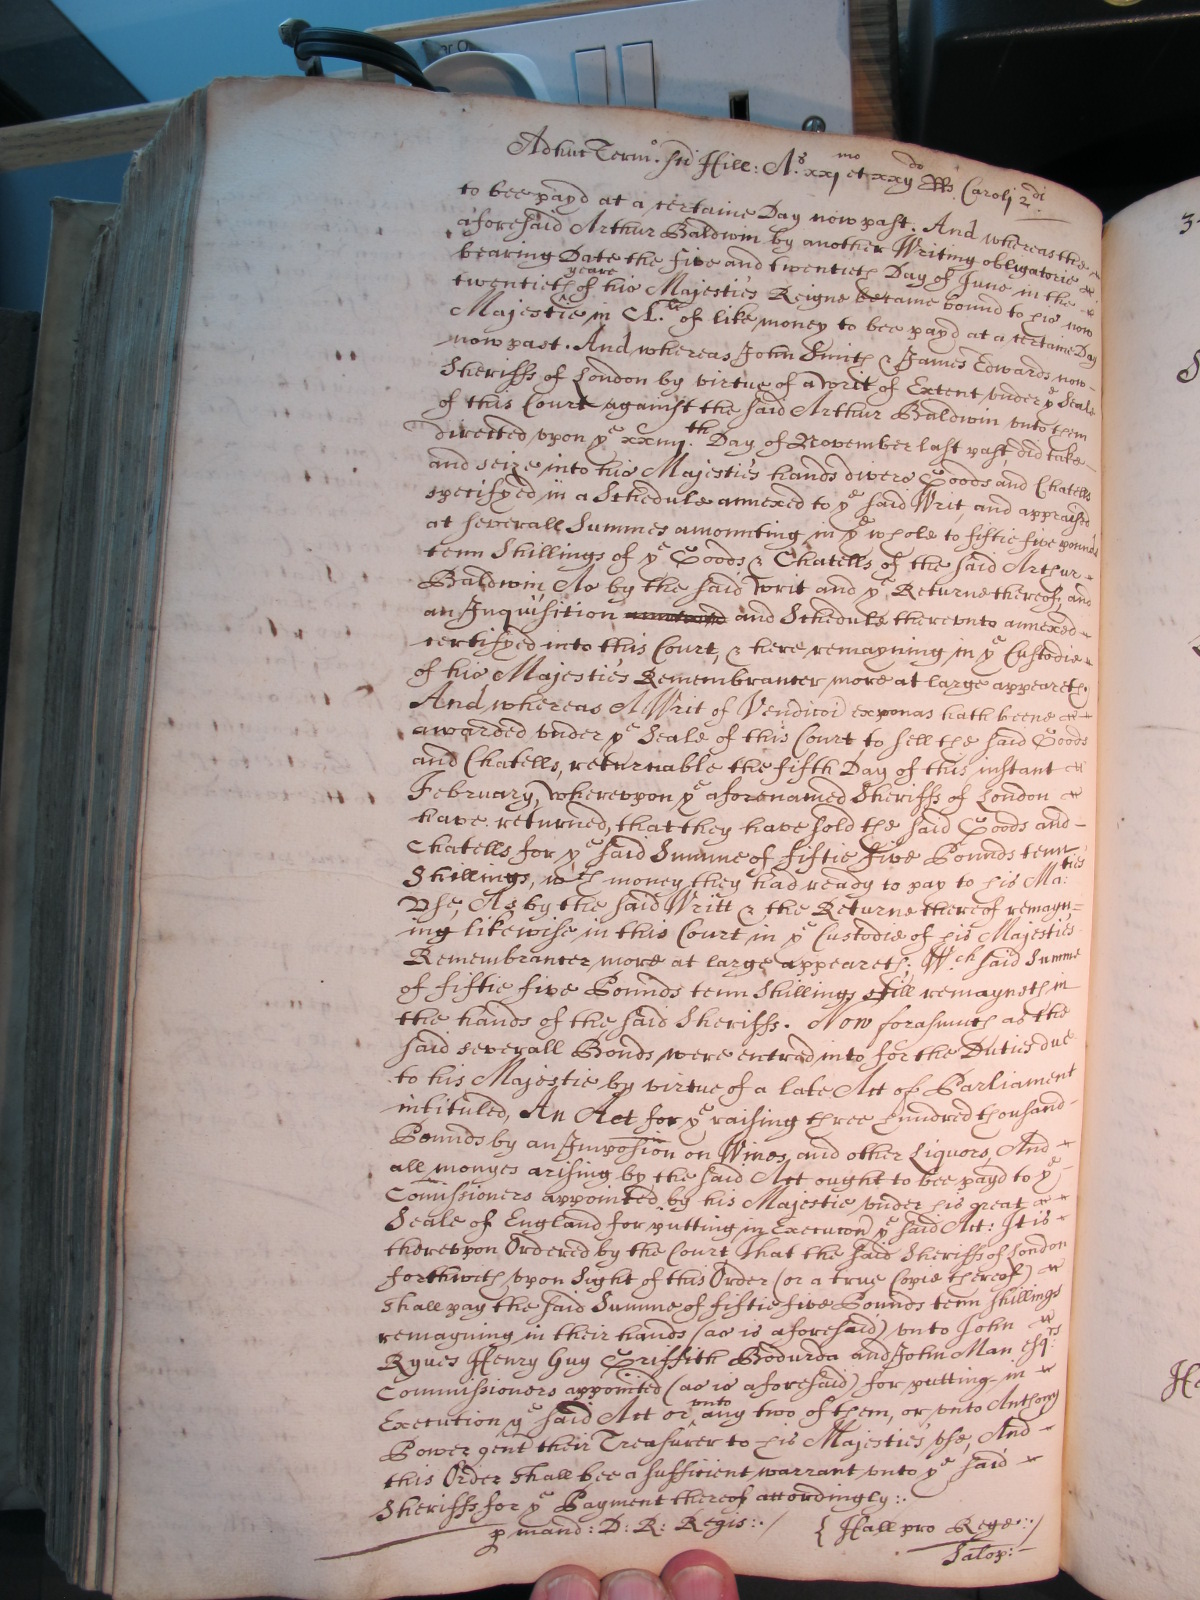 Adhuc Term.º Sti Hill: A.º xxj.mo et xxij.do RRs Caroli 2.di
to bee payd at a certaine Day now past. And whereas the
aforesaid Arthur Baldwin by another Writing obligatorie
bearing Date the five and twentieth Day of June in the
twentieth yeare of his Majesties Reigne became bound to his now
Majestie in CL.li of like money to bee payd at a certaine Day
now past. And whereas John Smith & James Edwards now
Sheriffs of London by virtue of a Writ of Extent vnder ye Seale
of this Court against the said Arthur Baldwin vnto them
directed vpon ye xxiiij.th Day of November last past, did take
and seize into his Majesties hands divers Goods and Chatells
specifyed in a Schedule annexed to ye said Writ, and appraised
at severall Summes amounting in ye whole to fiftie five pounds
tenn Shillings of ye Goods & Chatells of the said Arthur
Baldwin, As by the said Writ and ye Returne thereof, and
an Inquisition and Schedule therevnto annexed
certifyed into this Court, & here remayning in ye Custodie
of his Majesties Remembrancer more at large appeareth.
And whereas A Writ of Vendicoi exponas hath beene
awarded vnder ye Seale of this Court to sell the said Goods
and Chatells, returnable the fifth Day of this instant
February, Wherevpon ye aforenamed Sheriffs of London
have returned, that they have sold the said Goods and
Chatells for ye said Summe of fiftie five Pounds tenn
Shillings, wch money they had ready to pay to his Ma:ties
Vse, As by the said Writt & the Returne thereof remayn=
ing likewise in this Court in ye Custodie of his Majesties
Remembrancer more at large appeareth; Wch said Summe
of fiftie five Pounds tenn Shillings still remayneth in
the hands of the said Sheriffs. Now forasmuch as the
said severall Bonds were entred into for the Duties due
to his Majestie by virtue of a late Act of Parliament
intituled, An Act for ye raising three hundred thousand
Pounds by an Imposicion on Wines and other Liquors, And
all monyes arising by the said Act ought to bee payd to ye
Comissioners appointed by his Majestie vnder his great
Seale of England for putting in Execucon ye said Act: It is
therevpon Ordered by the Court that the said Sheriffs of London
forthwith vpon Sight of this Order (or a true Copie thereof)
shall pay the said Summe of fiftie five Pounds tenn shillings
remayning in their hands (as is aforesaid) vnto John
Ryves Henry Guy Griffith Bodurda and John Man Esq:rs
Commissioners appointed (as is aforesaid) for putting in
Execution ye said Act or vnto any two of them, or vnto Anthony
Power gent their Treasurer to his Majesties vse, And
this Order shall bee a sufficient warrant vnto ye said
Sheriffs for ye Payment thereof accordingly:.
p mand: D: R: Regis:. / { Hall pro Rege:. /
Salop: